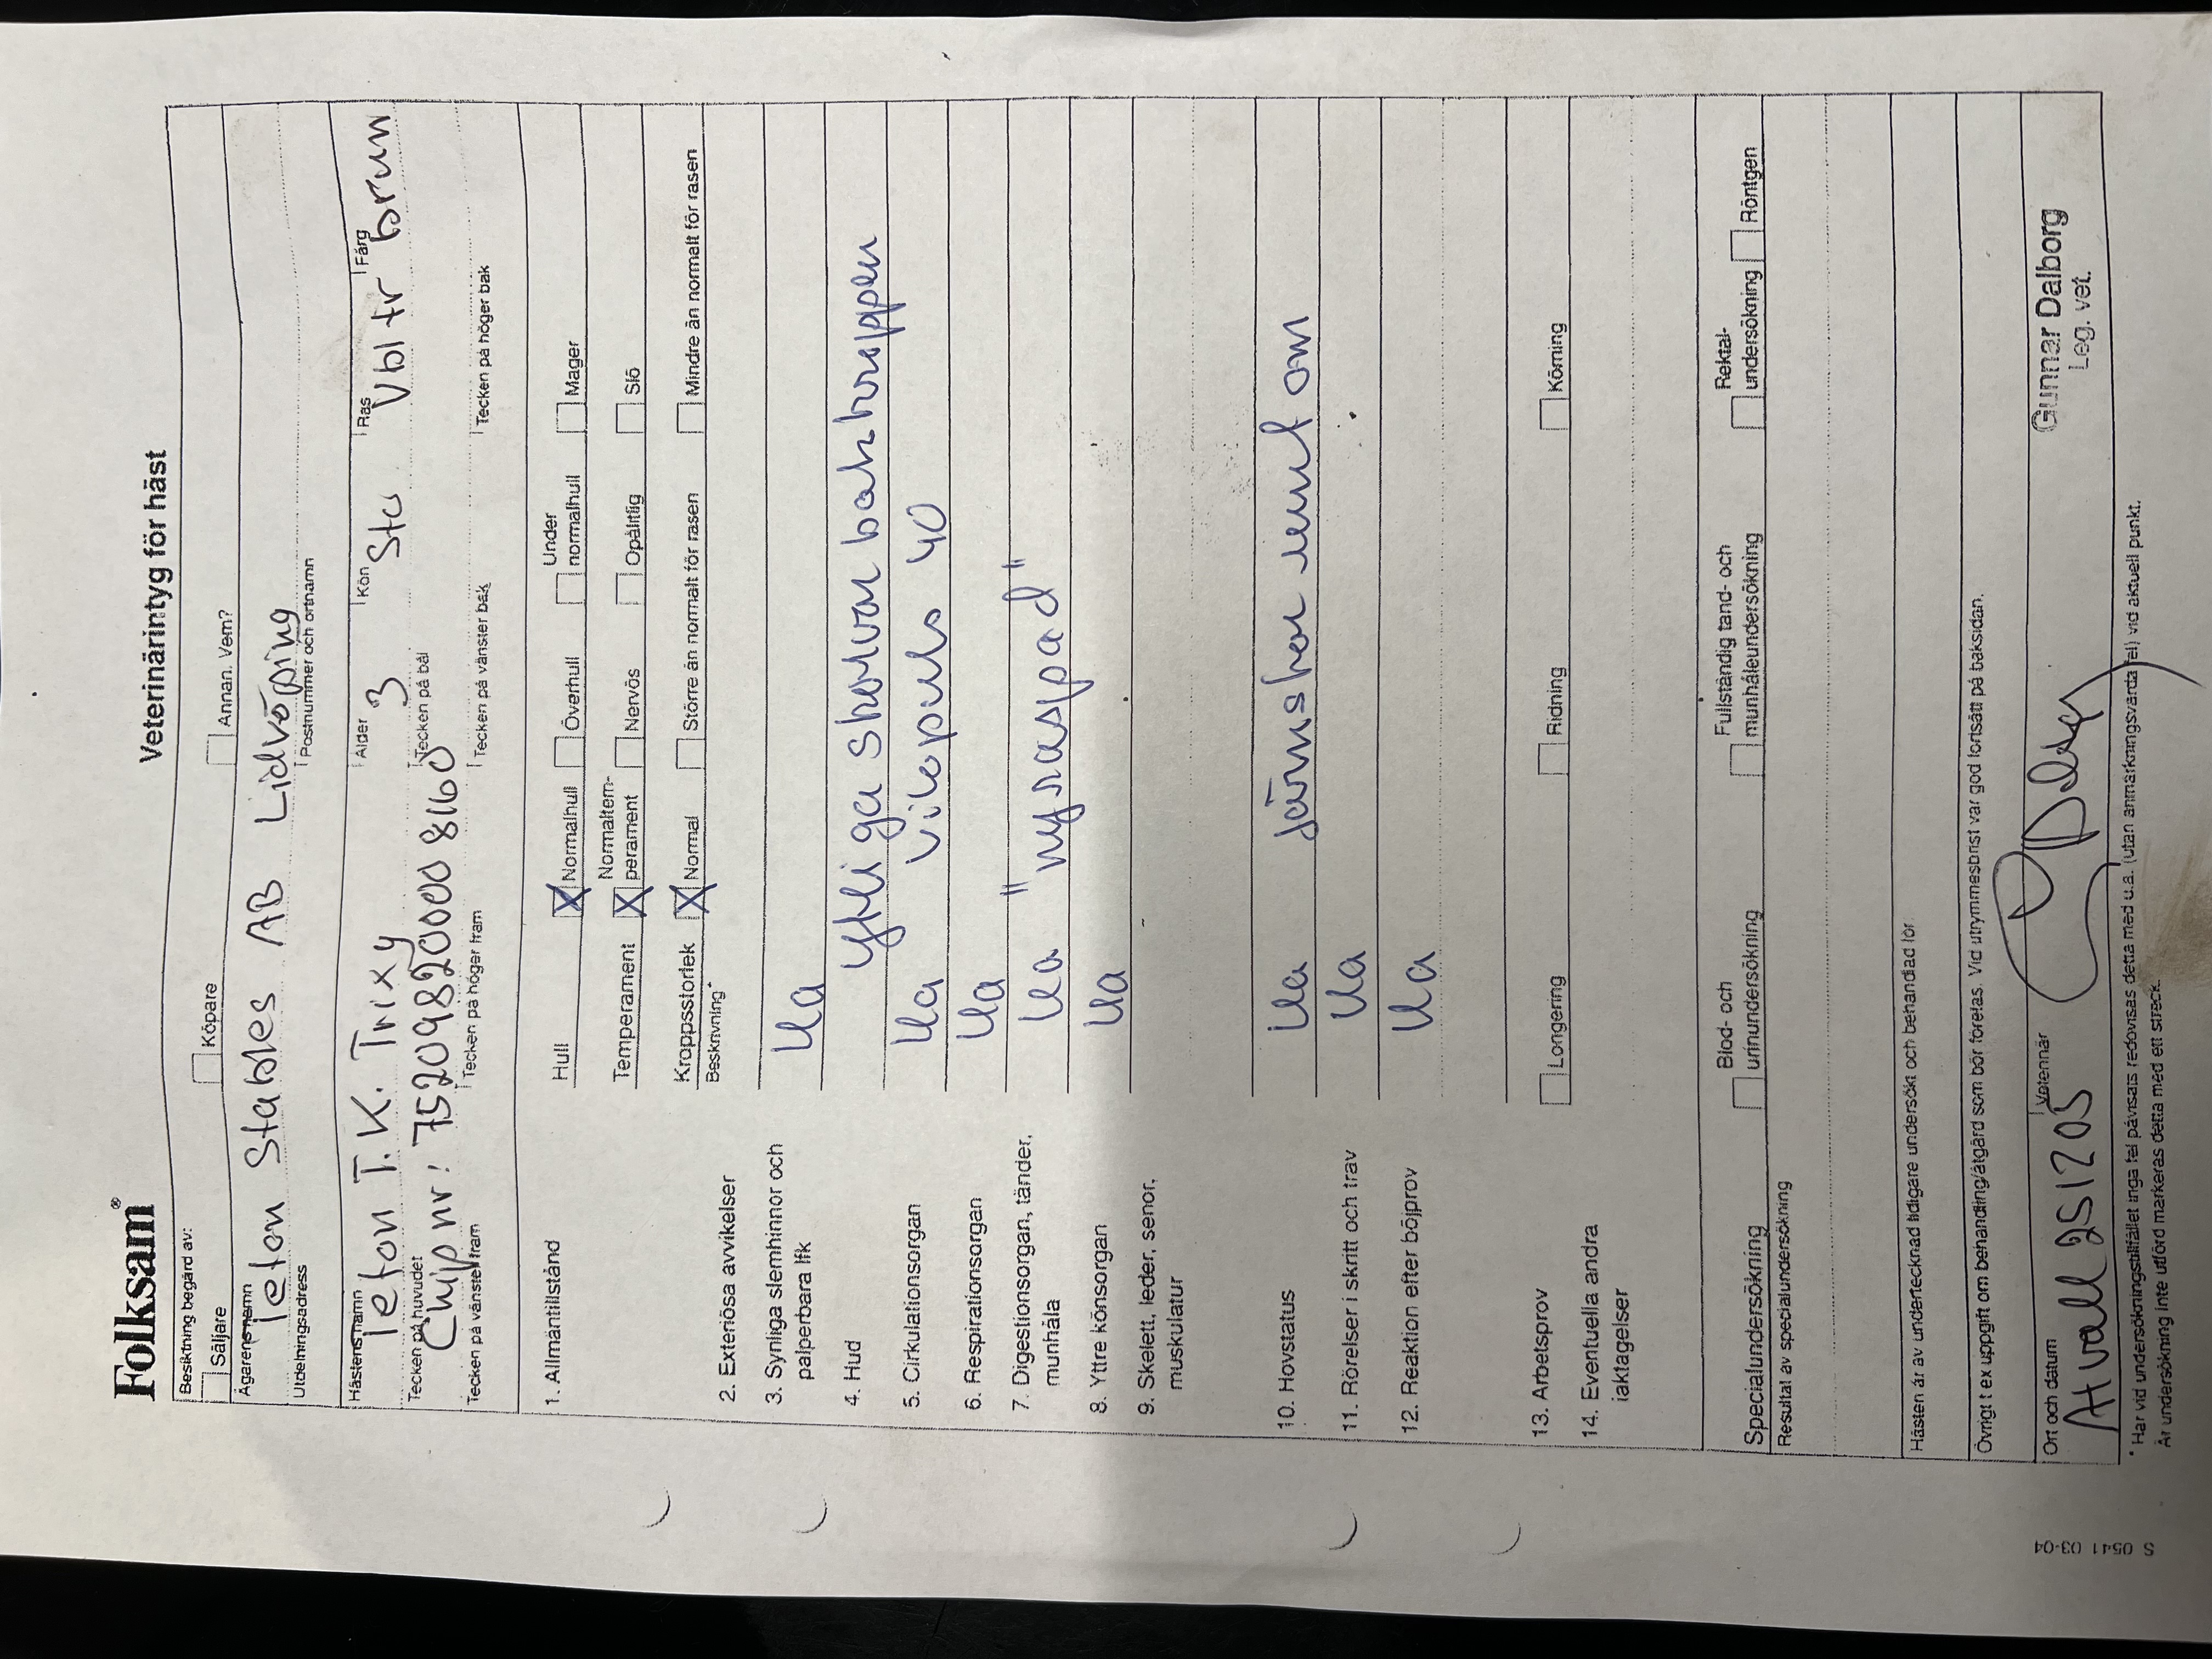 Folksam®
Veterinärintyg för häst
Besiktning begärd av:
Säljare Köpare Annan. Vem?
Ägarens namn
Teton Stables AB Lidvöping
Utdelningsadress Postnummer och ortnamn
Hästens namn Ålder Kön Ras Färg
Teton T.K. Trixy 3 Sto Vbl tr brun
Tecken på huvudet Tecken på bål
Chip nr: 752098200008160
Tecken på vänster fram Tecken på höger fram Tecken på vänster bak Tecken på höger bak
1. Allmäntillstånd Hull X Normalhull Överhull Under normalhull Mager
Temperament X Normaltemperament Nervös Opålitlig Slö
Kroppsstorlek X Normal Större än normalt för rasen Mindre än normalt för rasen
Beskrivning*
2. Exteriösa avvikelser
3. Synliga slemhinnor och
palperbara lfk Ua
4. Hud ytliga skorvar bakkroppen
5. Cirkulationsorgan Ua vilopuls 40
6. Respirationsorgan Ua
7. Digestionsorgan, tänder,
munhåla Ua "nyraspad"
8. Yttre könsorgan Ua
9. Skelett, leder, senor,
muskulatur
10. Hovstatus Ua järnskor runt om
11. Rörelser i skritt och trav Ua
12. Reaktion efter böjprov Ua
13. Arbetsprov Longering Ridning Körning
14. Eventuella andra
iakttagelser
Specialundersökning Blod- och urinundersökning Fullständig tand- och munhåleundersökning Rektalundersökning Röntgen
Resultat av specialundersökning
Hästen är av undertecknad tidigare undersökt och behandlad för
Övrigt t ex uppgift om behandling/åtgärd som bör företas. Vid utrymmesbrist var god fortsätt på baksidan.
Ort och datum Veterinär
Axvall 251205 Gunnar Dalborg
Leg. vet.
* Har vid undersökningstillfället inga fel påvisats redovisas detta med u.a. (utan anmärkningsvärda fel) vid aktuell punkt.
Är undersökning inte utförd markeras detta med ett streck.
S 0541 03-04